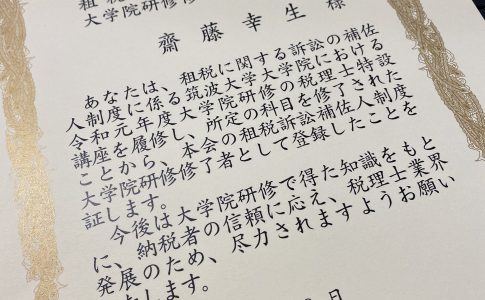 租税
大学院研修
齋藤幸生 様
あなたは、租税に関する訴訟の補佐
人制度に係る筑波大学大学院における
令和元年度大学院研修の税理士特設
講座を履修し、所定の科目を修了された
ことから、本会の租税訴訟補佐人制度
大学院研修修了者として登録したことを
証します。
今後は大学院研修で得た知識をもと
に、納税者の信頼に応え、税理士業界
発展のため、尽力されますようお願い
します。
日